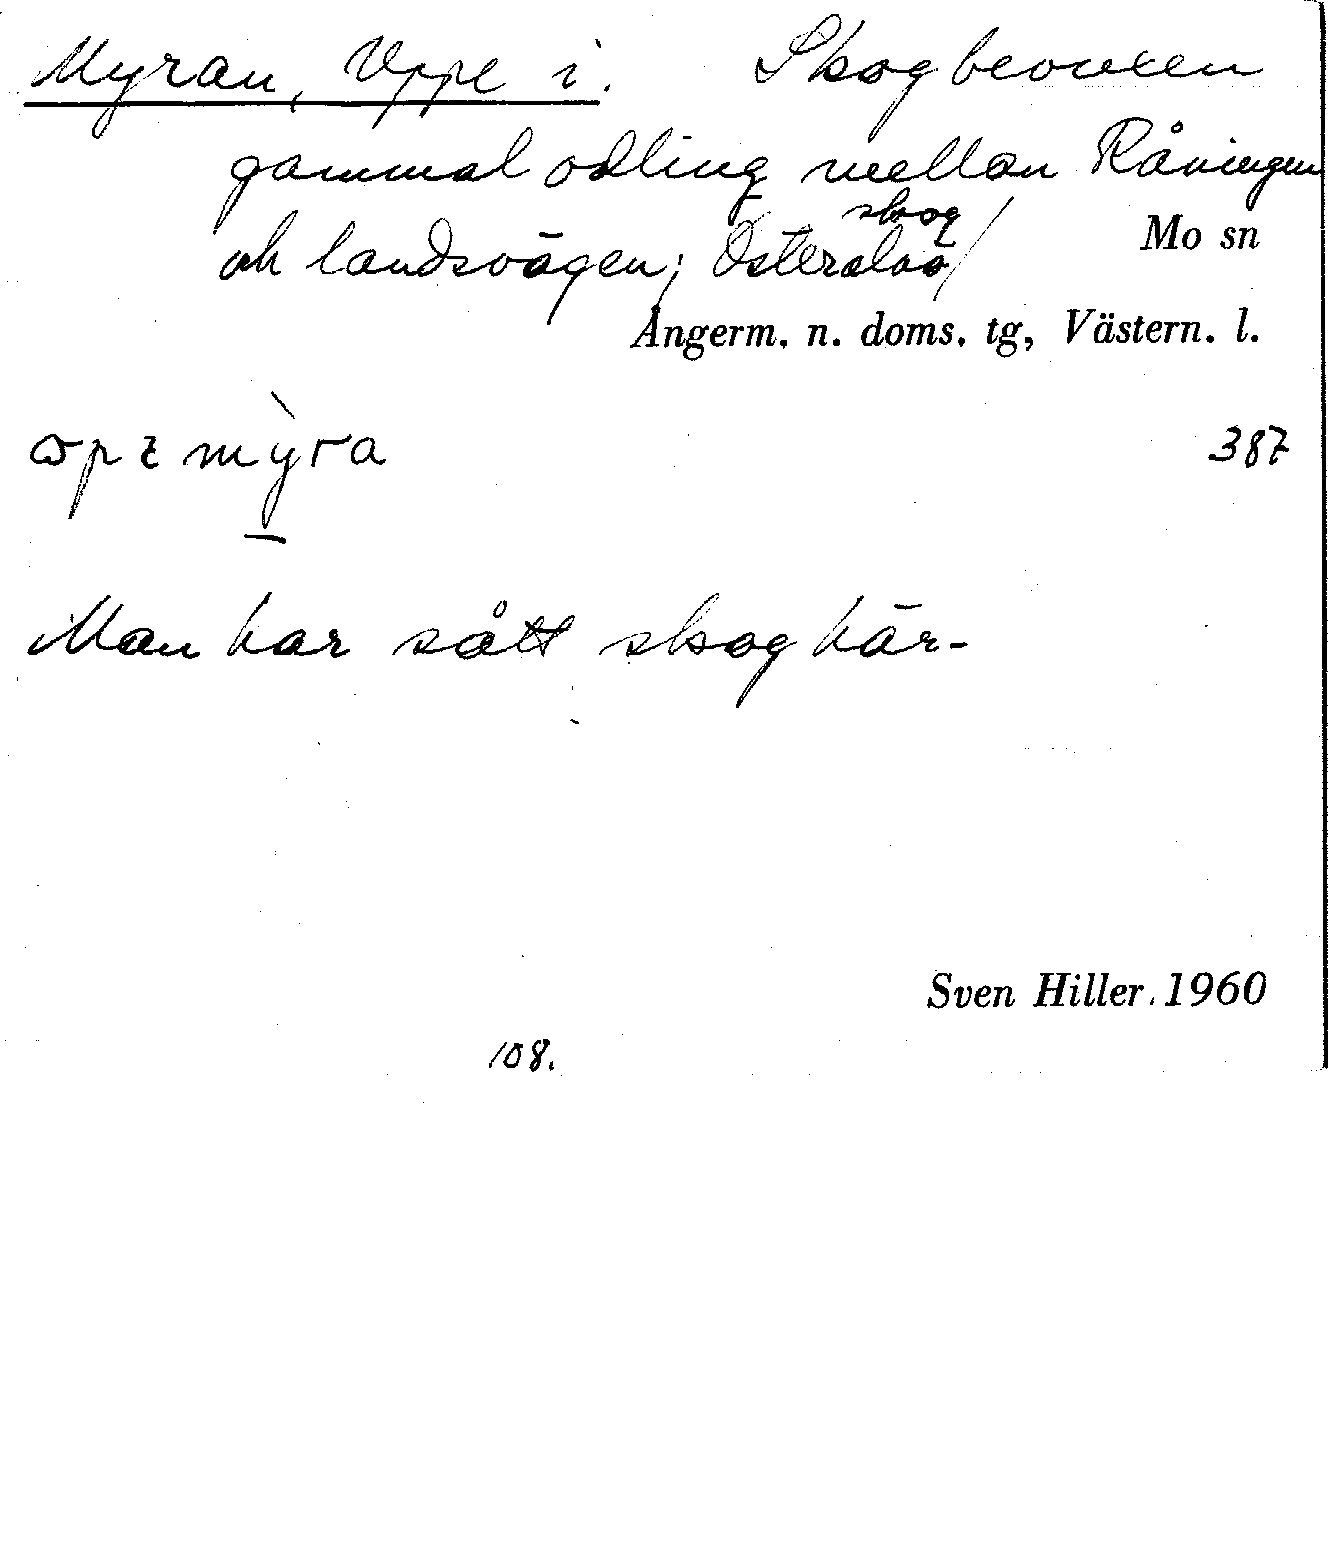 Myran, Uppe i. Skogbevuxen
gammal odling mellan Råningen
och landsvägen; Österskog
Mo sn
Ångerm. n. doms. tg, Västern. l.
387
Man har sått skog här.
Sven Hiller. 1960
108.